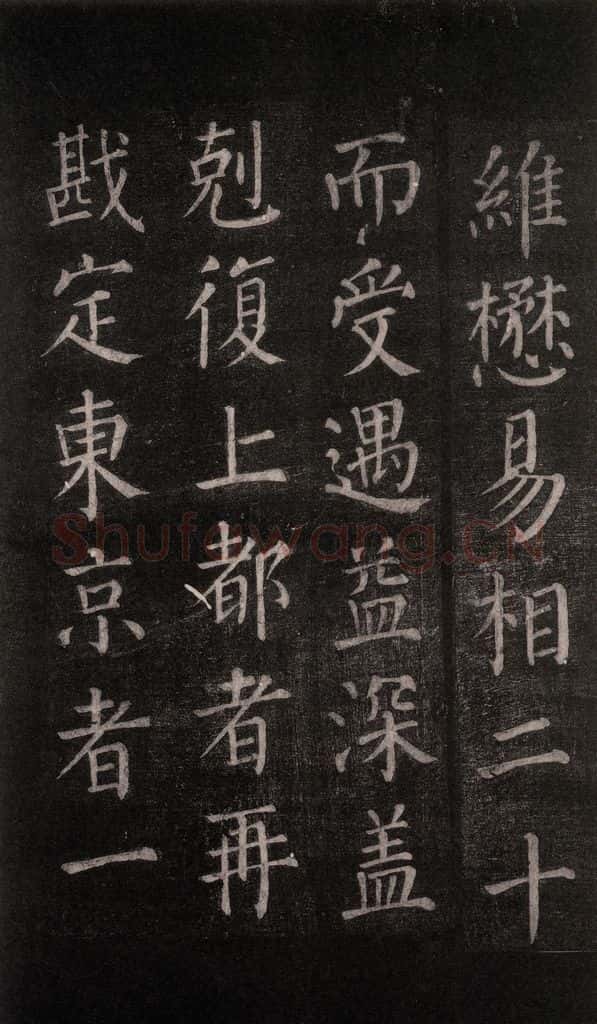 維懋易相二十
而受遇益深盖
剋復上都者再
戡定東京者一
Shufawang.CN